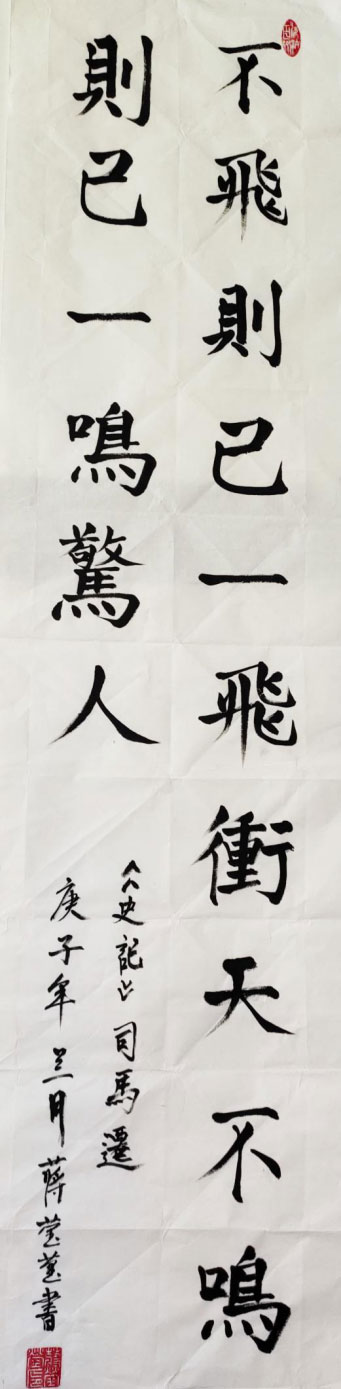 不飛則已一飛衝天不鳴
則已一鳴驚人
《史記》司馬遷
庚子年兰月蔣莹莹書